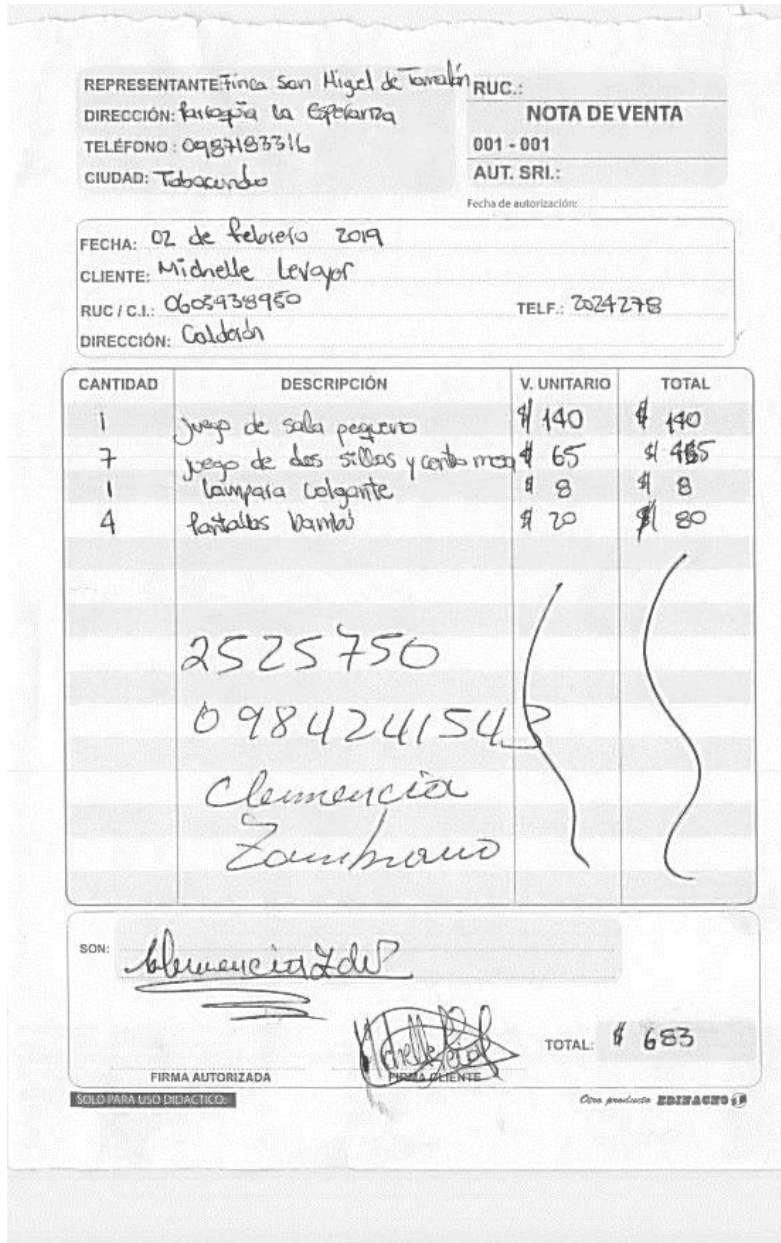 REPRESENTANTE: Finca San Migel de Tomalón
DIRECCIÓN: Parroquia La Esperanza
TELÉFONO : 0987183316
CIUDAD: Tabacundo
RUC.:
NOTA DE VENTA
001 - 001
AUT. SRI.:
Fecha de autorización:
FECHA: 02 de febrero 2019
CLIENTE: Michelle Levoyer
RUC / C.I.: 0603938950 TELF.: 2024278
DIRECCIÓN: Calderón
CANTIDAD DESCRIPCIÓN V. UNITARIO TOTAL
1 juego de sala pequeno $ 140 $ 140
7 juego de dos sillas y centro mesa $ 65 $ 455
1 Lampara Colgante $ 8 $ 8
4 Pantallas bambú $ 20 $ 80
2525750
0984241543
Clemencia
Zambrano
SON:
Clemencia Z de
TOTAL: $ 683
FIRMA AUTORIZADA FIRMA CLIENTE
SOLO PARA USO DIDACTICO.
Otro producto EDINACHO